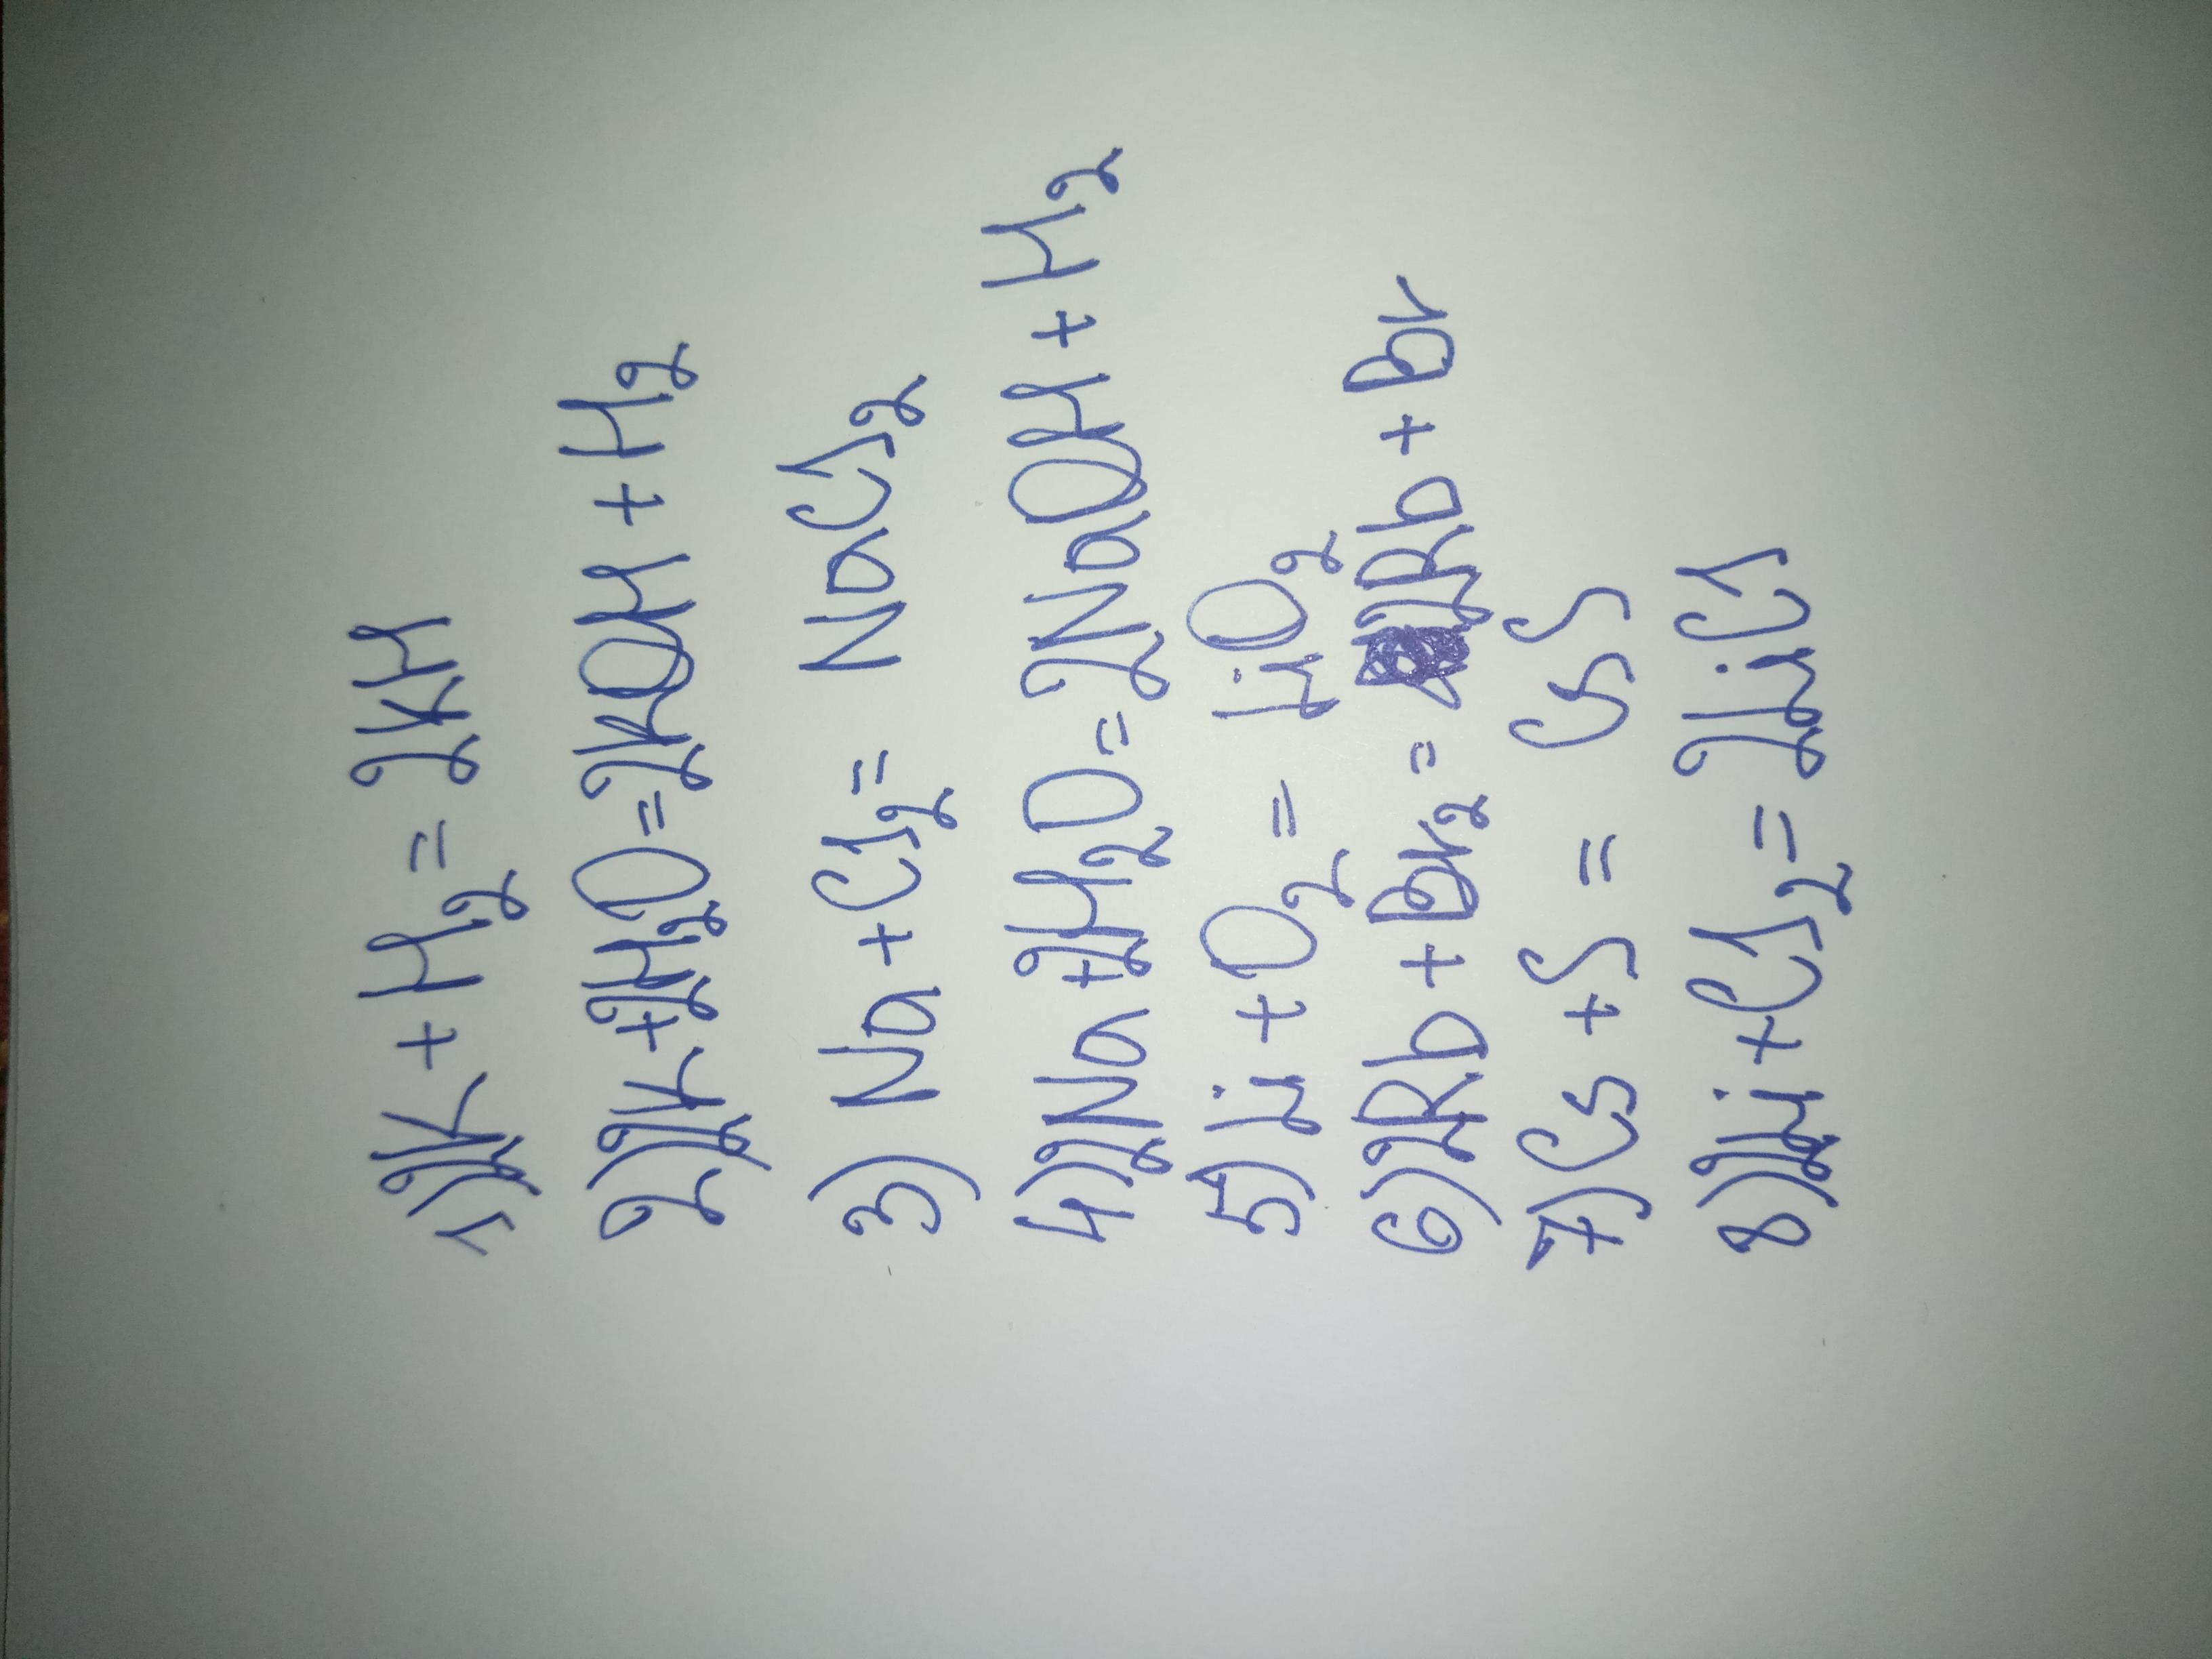 1) 2K + H₂ = 2KH
2) 2K + 2H₂O = 2KOH + H₂
3) Na + Cl₂ = NaCl₂
4) 2Na + 2H₂O = 2NaOH + H₂
5) Li + O₂ = LiO₂
6) 2Rb + Br₂ = 2Rb + Br
7) Cs + S = CsS
8) 2Li + Cl₂ = 2LiCl